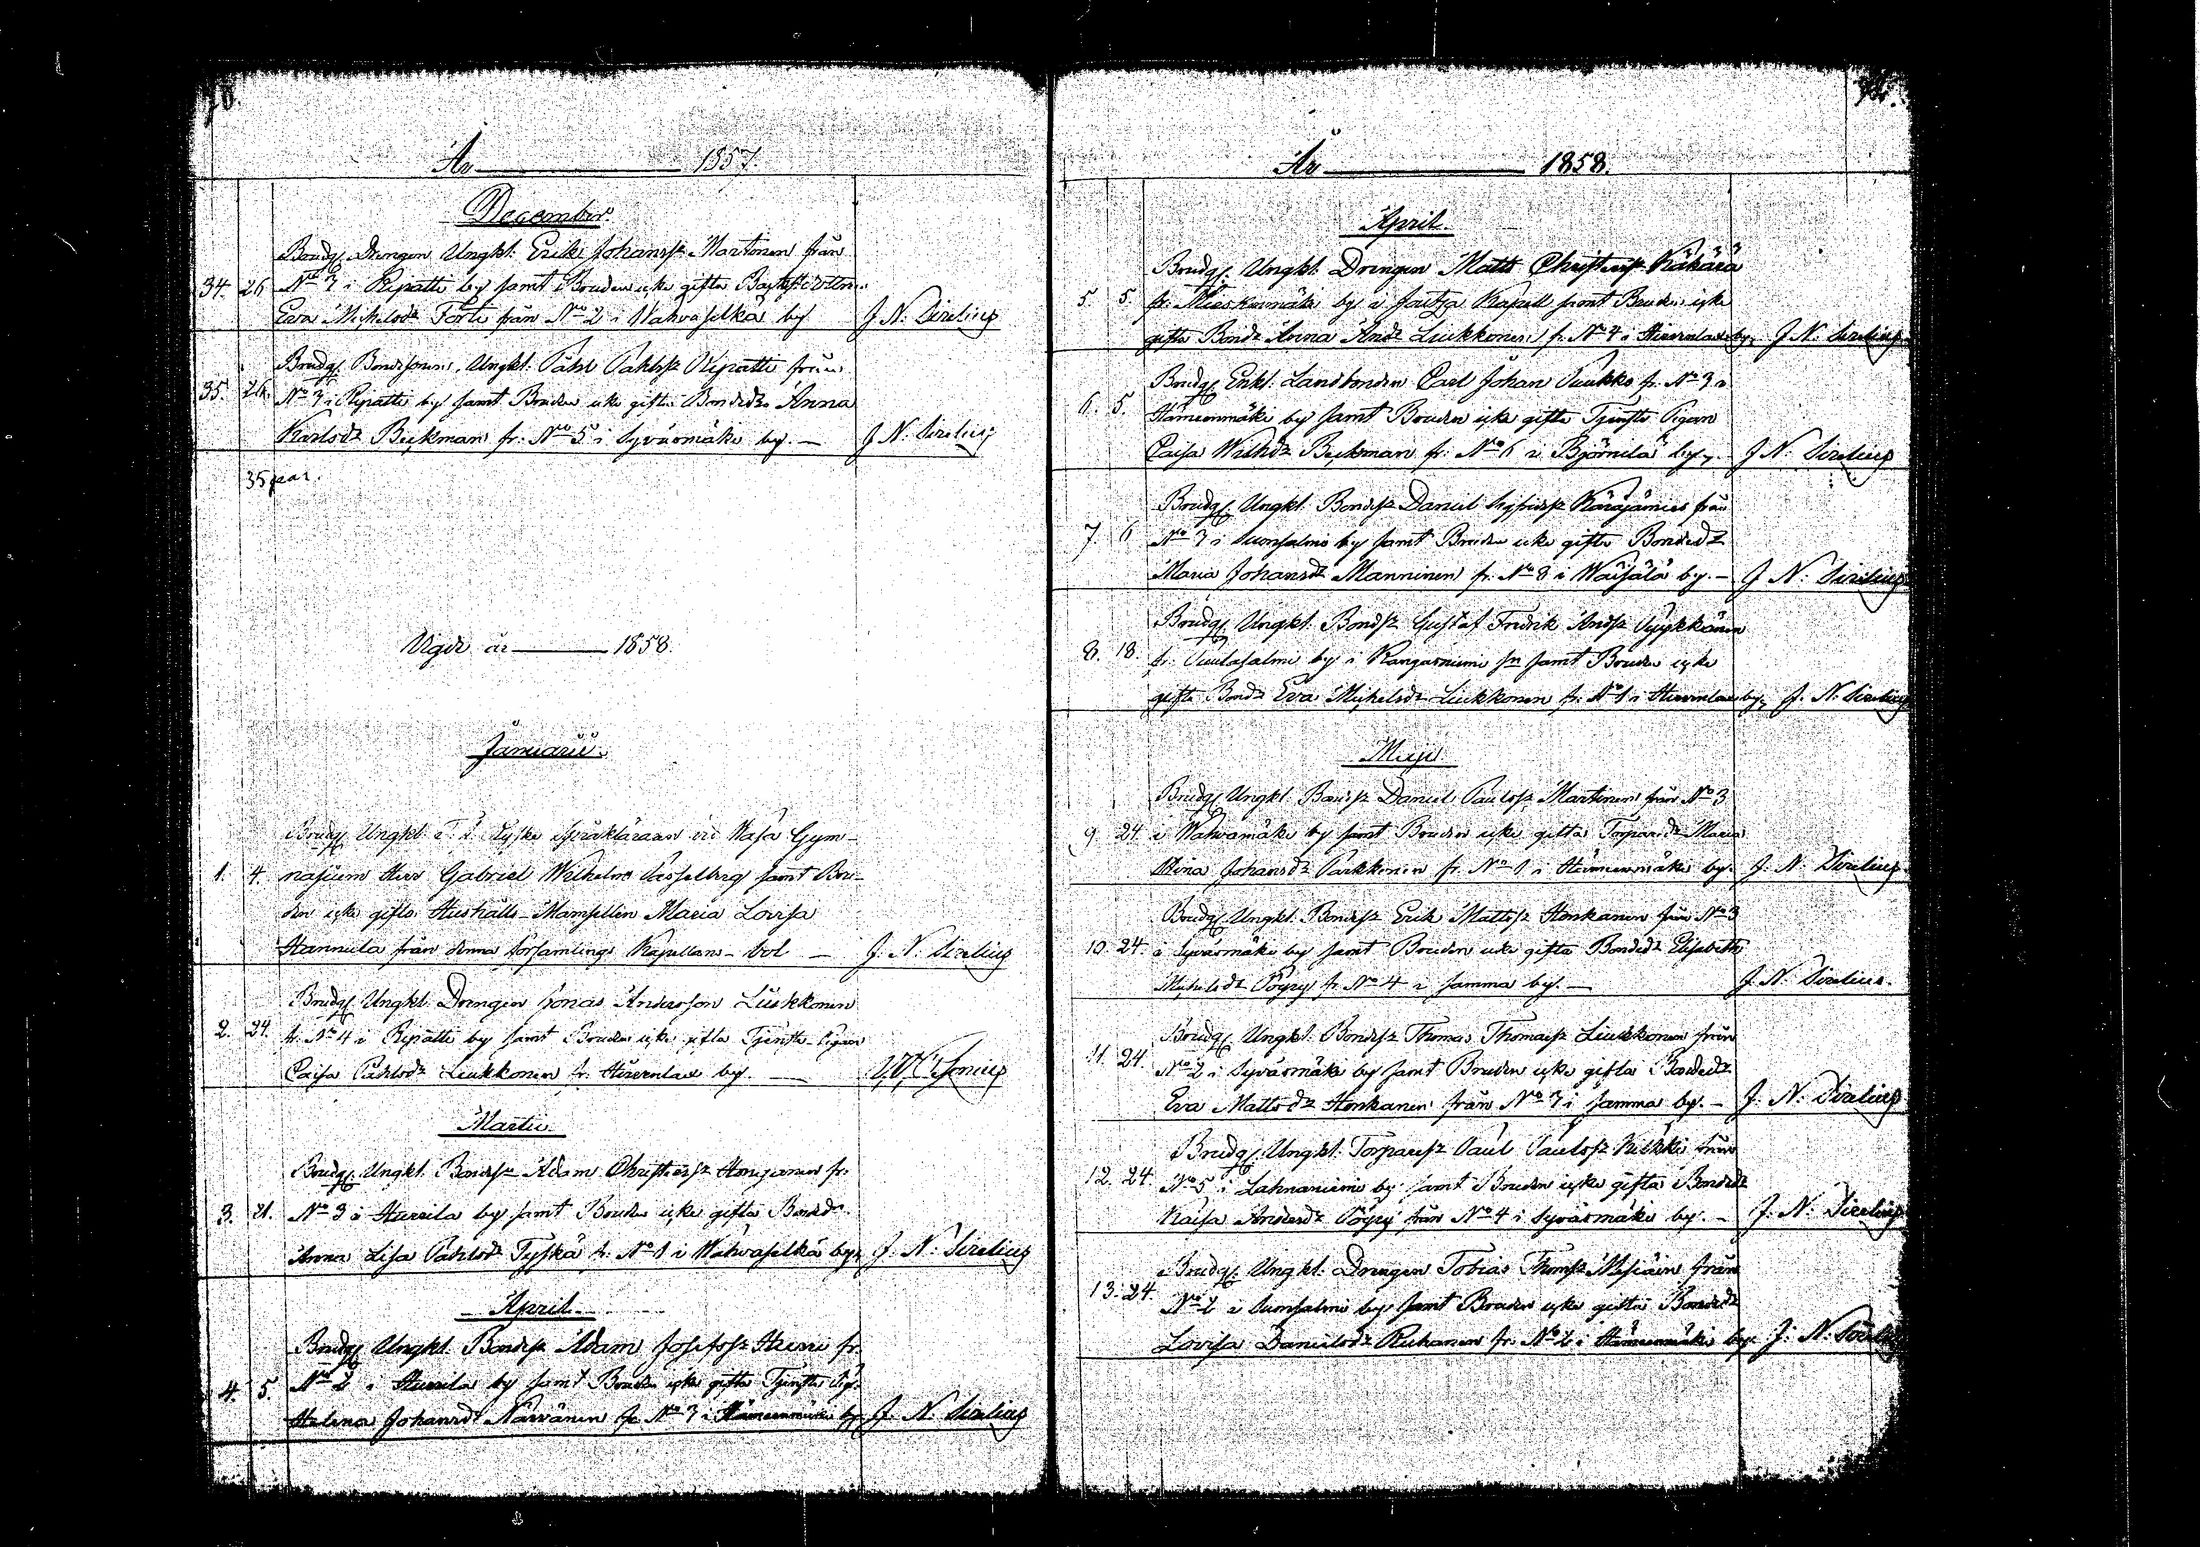 År 1857.
December.
Brudg. Drengen Ungkl. Erik Johanss: Martonen från
34. 26 No 7 i Ripatti by samt Bruden icke gifta
Eva Michelsdr Forti från No 2 i Wahvaselkä by J. N. Sirelius
Brudg. Bondesonen, Ungkl. Påhl Påhlss Ripatti från
35. 26. No 3 i Ripatti by samt Bruden icke gifta Bondedr Anna
Karlsdr Beckman fr. No 5 i Syväsmäki by. — J. N. Sirelius
35 par.
Vigde år 1858.
Januarii.
Brudg. Ungkl. Tyske språkläraren vid Wasa Gym-
1. 4. nasium Herr Gabriel Wilhelm Lasselberg samt Bru-
den icke gifta Hushålls-Mamsellen Maria Lovisa
Hannula från denna Församlings Kapellans-bol — J. N. Sirelius
Brudg. Ungkl. Drengen Jonas Andersson Liukkonen
2. 24. fr. No 4 i Ripatti by samt Bruden icke gifta Tjenste-Pigan
Caisa Påhlsdr Liukkonen fr. Hirvenlax by. —
Martii.
Brudg. Ungkl. Bondess Adam Christerss Honganen fr.
3. 21. No 3 i Hurrila by samt Bruden icke gifta Bondedr
Anna Lisa Påhlsdr Tyskä fr. No 1 i Wahvaselkä by, J. N. Sirelius
April.
Brudg. Ungkl. Bondess Adam Josefss Hurri fr.
4. 5. No 2 i Hurrila by samt Bruden icke gifta Tjenste Pig.
Helena Johansdr Närvänen fr. No 3 i Hämeenmäki by J. N. Sirelius
År 1858.
April.
Brudg. Ungkl. Drengen Matts Christerss Käkärä
5. 5. fr. Mieskonmäki by i Jorois Kapell samt Bruden icke
gifta Bondr Anna Andr Liukkonen fr. No 4 i Hirvenlax by, J. N. Sirelius
Brudg. Enkl. Landbonden Carl Johan Puukko fr. No 3 i
6. 5. Hämeenmäki by samt Bruden icke gifta Tjenste Pigan
Caisa Wilhdr Beckman fr. No 6 i Björnilä by, J. N. Sirelius
Brudg. Ungkl. Bondess Daniel Sigfridss Käräjämies från
7. 6 No 7 i Sumsalmi by samt Bruden icke gifta Bondedr
Maria Johansdr Manninen fr. No 8 i Waisälä by. — J. N. Sirelius
Brudg. Ungkl. Bondss Gustaf Fredrik Andss Pyykkänen
8. 18. fr. Tuulasalmi by i Kangasniemi sn samt Bruden icke
gifta Bondr Eva Michelsdr Liukkonen fr. No 1 i Hirvenlax by, J. N. Sirelius
Maji
Brudg. Ungkl. Bondess Daniel Paulss Martinen från No 3
9. 24. i Wahvamäki by samt Bruden icke gifta Torpardr Maria
Stina Johansdr Parkkonen fr. No 1 i Hämeenmäki by. J. N. Sirelius
Brudg. Ungkl. Bondess Erik Mattss Honkanen från No 3
10. 24. i Syväsmäki by samt Bruden icke gifta Bondedr Elisabeth
Michelsdr Pöyry fr. No 4 i samma by. — J. N. Sirelius.
Brudg. Ungkl. Bondess Thomas Thomass Liukkonen från
11. 24. No 2 i Syväsmäki by samt Bruden icke gifta Bondedr
Eva Mattsdr Honkanen från No 7 i samma by. — J. N. Sirelius
Brudg. Ungkl. Torparess Paul Paulss Kilkki från
12. 24. No 5 i Lahnaniemi by samt Bruden icke gifta Bondedr
Kaisa Andersdr Pöyry från No 4 i Syväsmäki by. — J. N. Sirelius
Brudg. Ungkl. Drengen Tobias Thomss Wisiäin från
13. 24. No 2 i Sumsalmi by samt Bruden icke gifta Bondedr
Lovisa Danielsdr Kuhanen fr. No 2 i Hämeenmäki by. J. N. Sirelius